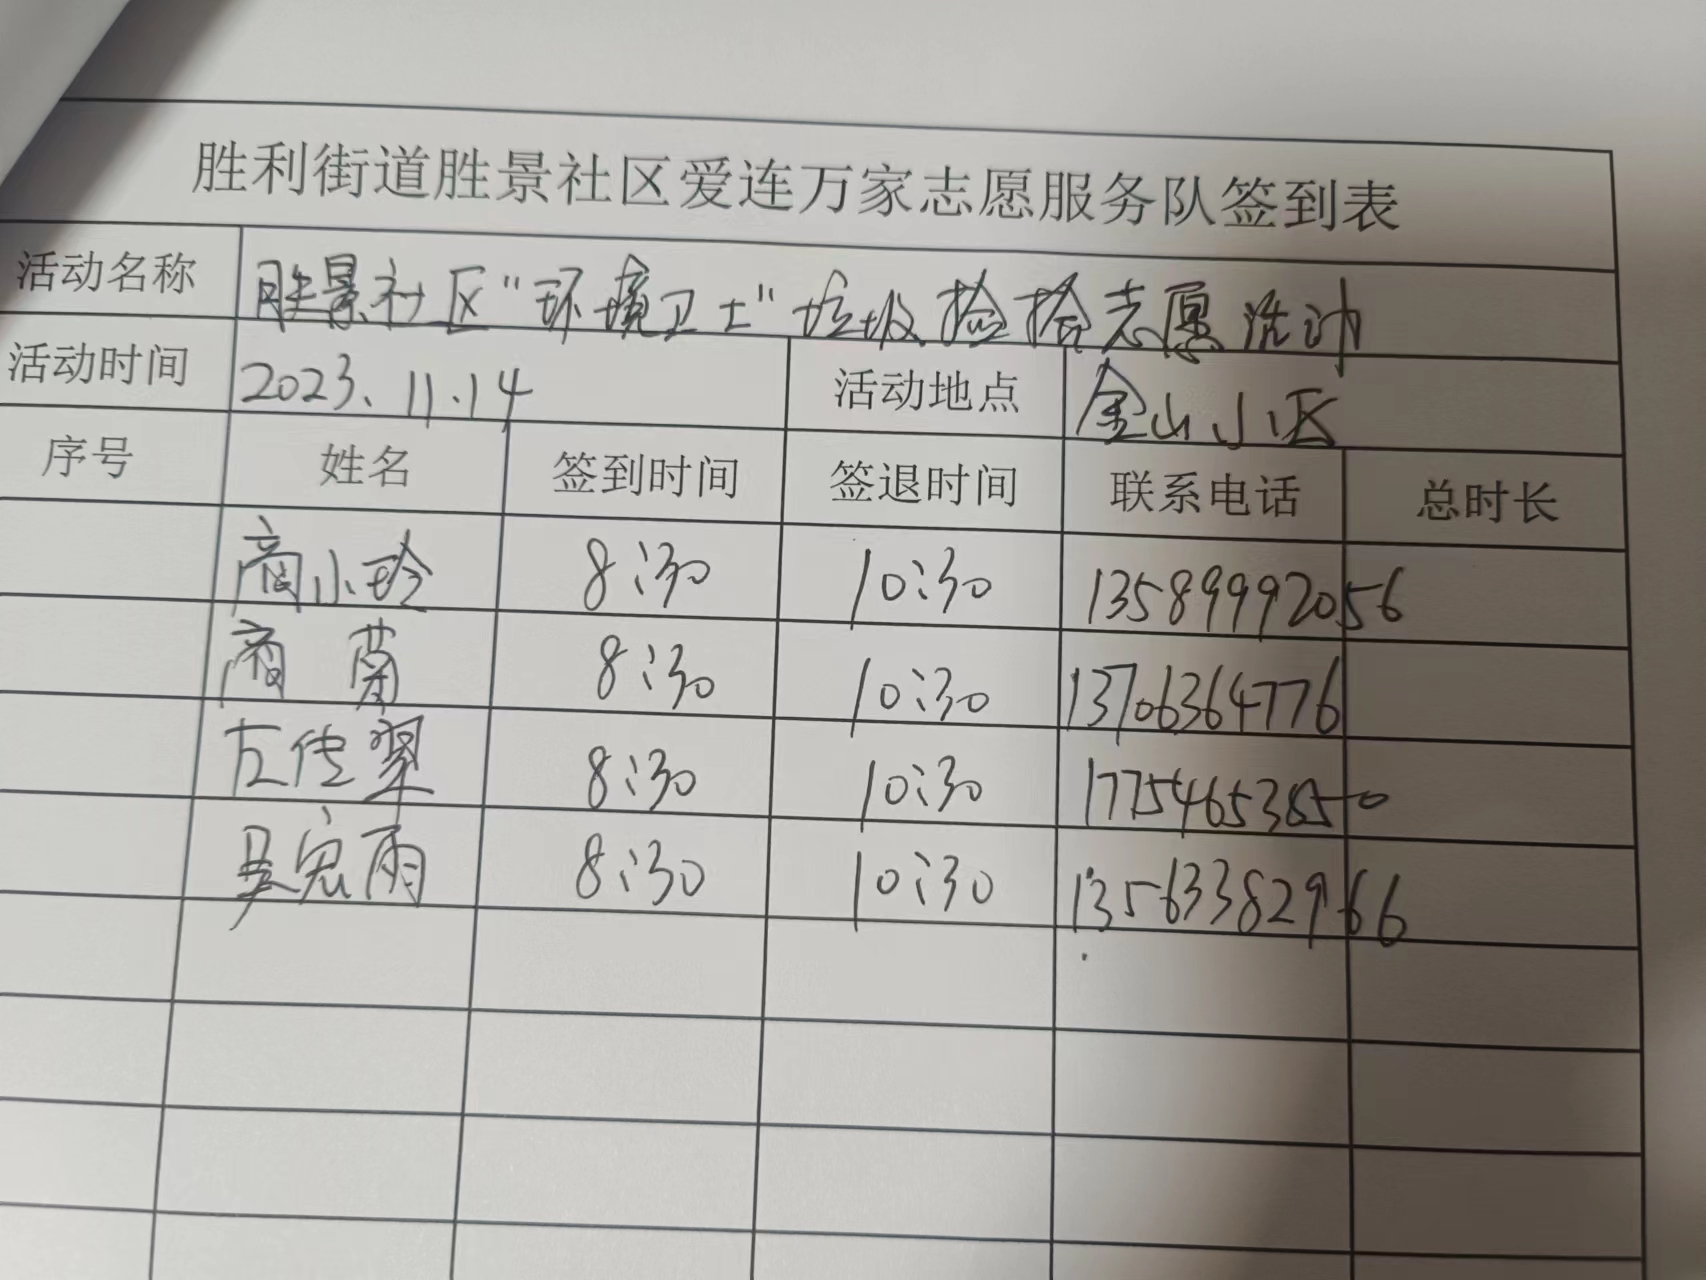 胜利街道胜景社区爱连万家志愿服务队签到表
活动名称 胜景社区"环境卫士"垃圾捡拾志愿活动
活动时间 2023、11.14 活动地点 金山小区
序号 姓名 签到时间 签退时间 联系电话 总时长
商小玲 8:30 10:30 13589992056
商菊 8:30 10:30 13706364776
左传翠 8:30 10:30 17754653850
吴宏雨 8:30 10:30 13563382966